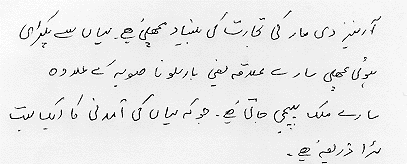 آرینیز دی مار کی تجارت کی بنیاد مچھلی ہے۔ یہاں سے پکڑی
ہوئی مچھلی سارے علاقہ یعنی بارسلونا صوبہ کے علاوہ
سارے ملک بھیجی جاتی ہے۔ جو کہ یہاں کی آمدنی کا ایک بہت
بڑا ذریعہ ہے۔